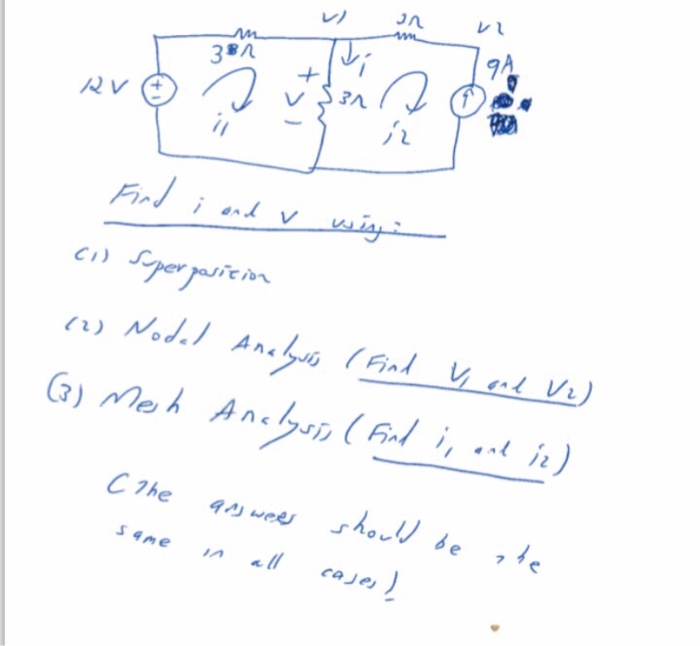 V1 3Ω V2
3Ω i 9A
12V + V - 3Ω
i1 i2
Find i and v using:
(1) Superposition
(2) Nodal Analysis (Find V1 and V2)
(3) Mesh Analysis (Find i1 and i2)
(The answers should be the
same in all cases!